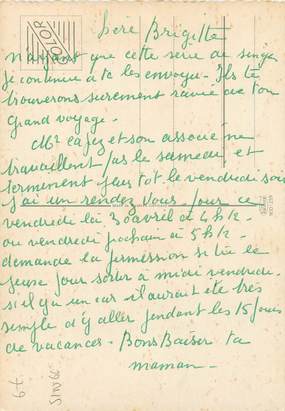 Chère Brigitte
n'ayant que cette série de singes
je continue à te les envoyer. Ils te
trouverons surement ravie de ton
Grand voyage.
Mr Cafez et son associé ne
travaillent pas le samedi et
terminent plus tot le vendredi soir
j'ai un rendez vous pour ce
vendredi le 30 avril à 4h½
ou vendredi prochain à 5h½.
demande la permission si tu le
peux pour sortir à midi vendredi.
si il y a un car il aurait été très
simple d'y aller pendant les 15 jours
de vacances. Bons Baiser ta
maman.
COLOR